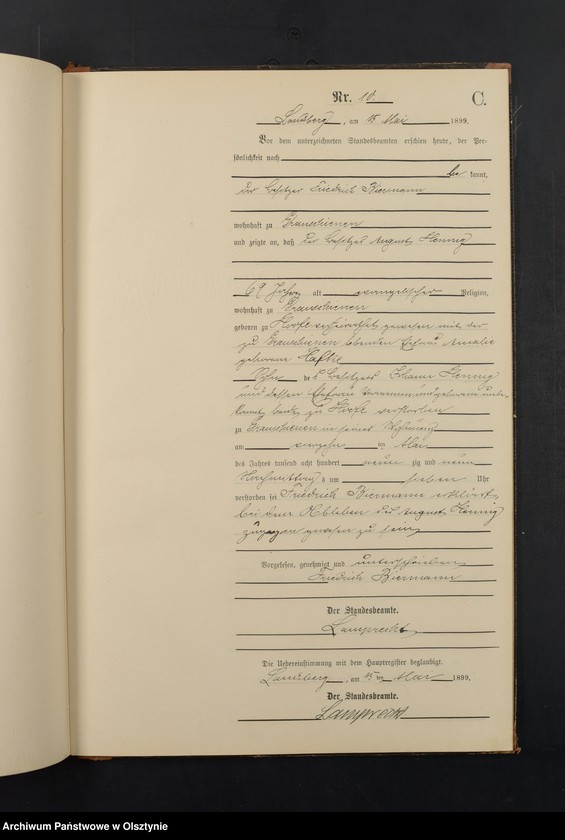 Nr. 10.
C.
Landsberg, am 15 Mai 1899.
Vor dem unterzeichneten Standesbeamten erschien heute, der Per-
sönlichkeit nach
be kannt,
der Besitzer Friedrich Biermann
wohnhaft zu
und zeigte an, daß der Besitzer August Hennig
69 Jahre alt evangelischer Religion,
wohnhaft zu
geboren zu verheirathet gewesen mit der
zu lebenden Ehefrau Amalie
geborene
Sohn des Besitzers Johann Hennig
und dessen Ehefrau
zu verstorben
zu in seiner Wohnung
am vierzehn ten Mai
des Jahres tausend acht hundert neun zig und neun
Nachmittags um sieben Uhr
verstorben sei Friedrich Biermann erklärt,
bei dem Ableben des August Hennig
zugegen gewesen zu sein
Vorgelesen, genehmigt und unterschrieben
Friedrich Biermann
Der Standesbeamte.
Lamprecht
Die Uebereinstimmung mit dem Hauptregister beglaubigt.
Landsberg, am 15 ten Mai 1899.
Der Standesbeamte.
Lamprecht
Archiwum Państwowe w Olsztynie